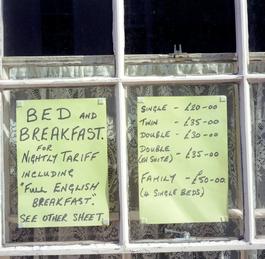 BED AND
BREAKFAST.
FOR
NIGHTLY TARIFF
INCLUDING
"FULL ENGLISH
BREAKFAST".
SEE OTHER SHEET
SINGLE - £20-00
TWIN - £35-00
DOUBLE - £30-00
DOUBLE - £35-00
(EN SUITE)
FAMILY - £50-00
(4 SINGLE BEDS)